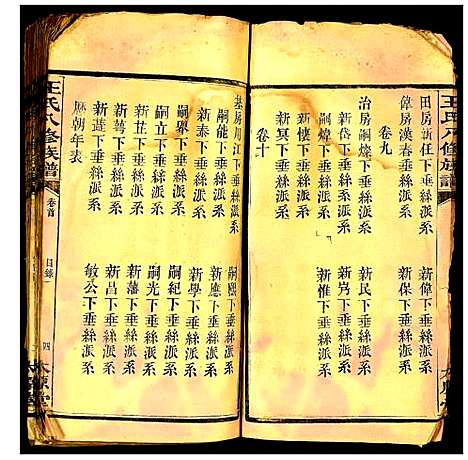 王氏八修族譜
田房新任下垂絲派系 新偉下垂絲派系
偉房漢春下垂絲派系 新保下垂絲派系
卷九
治房嗣燦下垂絲派系 新民下垂絲派系
嗣煒下垂絲派系
新懷下垂絲派系 新惟下垂絲派系
新冥下垂絲派系
卷十
基房川江下垂絲派系 嗣熙下垂絲派系
嗣能下垂絲派系 新應下垂絲派系
新泰下垂絲派系 新學下垂絲派系
嗣舉下垂絲派系 嗣紀下垂絲派系
嗣立下垂絲派系 嗣光下垂絲派系
新芷下垂絲派系 新藩下垂絲派系
新萼下垂絲派系 新昌下垂絲派系
下垂絲派系 敏公下垂絲派系
歷朝年表
王氏八修族譜
卷首
目錄
四
太原堂